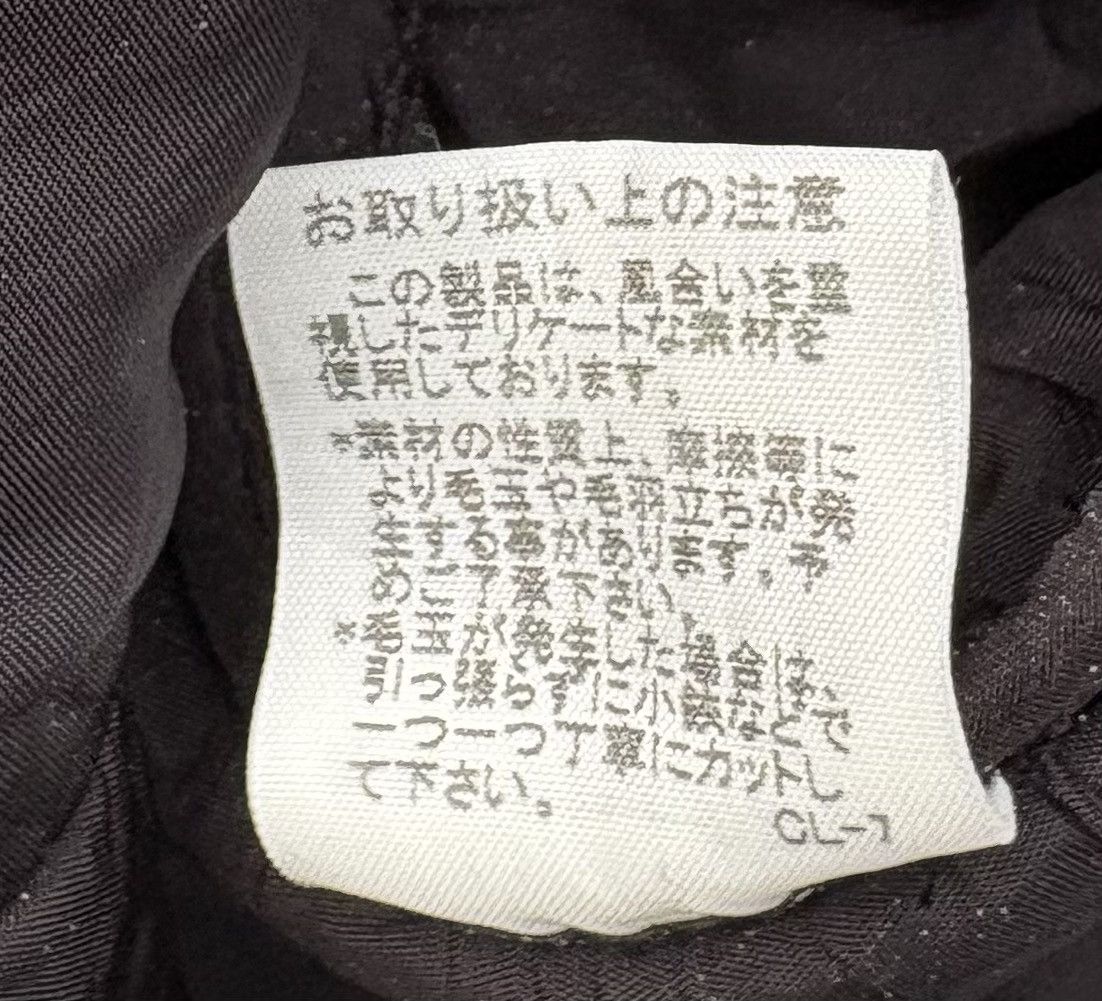 お取り扱い上の注意
この製品は、風合いを重
視したデリケートな素材を
使用しております。
*素材の性質上、摩擦等に
より毛玉や毛羽立ちが発
生する事があります。
ご了承下さい。
*毛玉が発生した場合は、
引っ張らずに小鋏などで
一つ一つ丁寧にカットし
て下さい。
CL-7